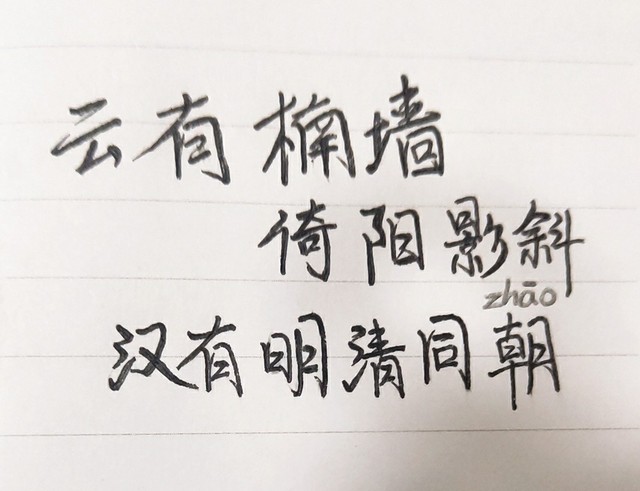 云有楠墙
倚阳影斜
zhāo
汉有明清同朝